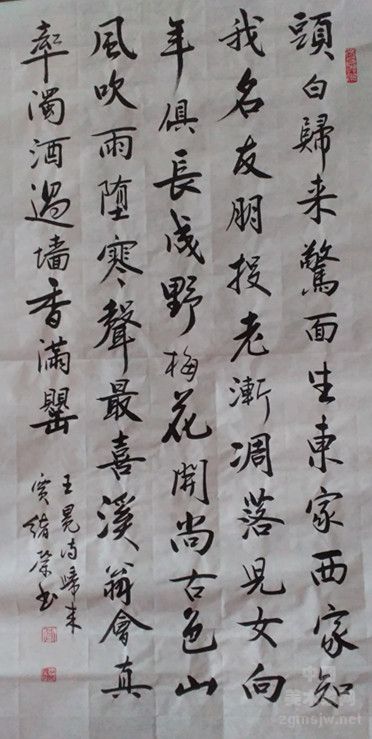 頭白歸来驚面生東家西家知
我名友朋投老漸凋落児女向
年俱長成野梅花開尚古色山
風吹雨墮寒聲最喜溪翁會真
率濁酒過墻香滿罌
王冕诗歸来
緒荣书
zgmsjw.net